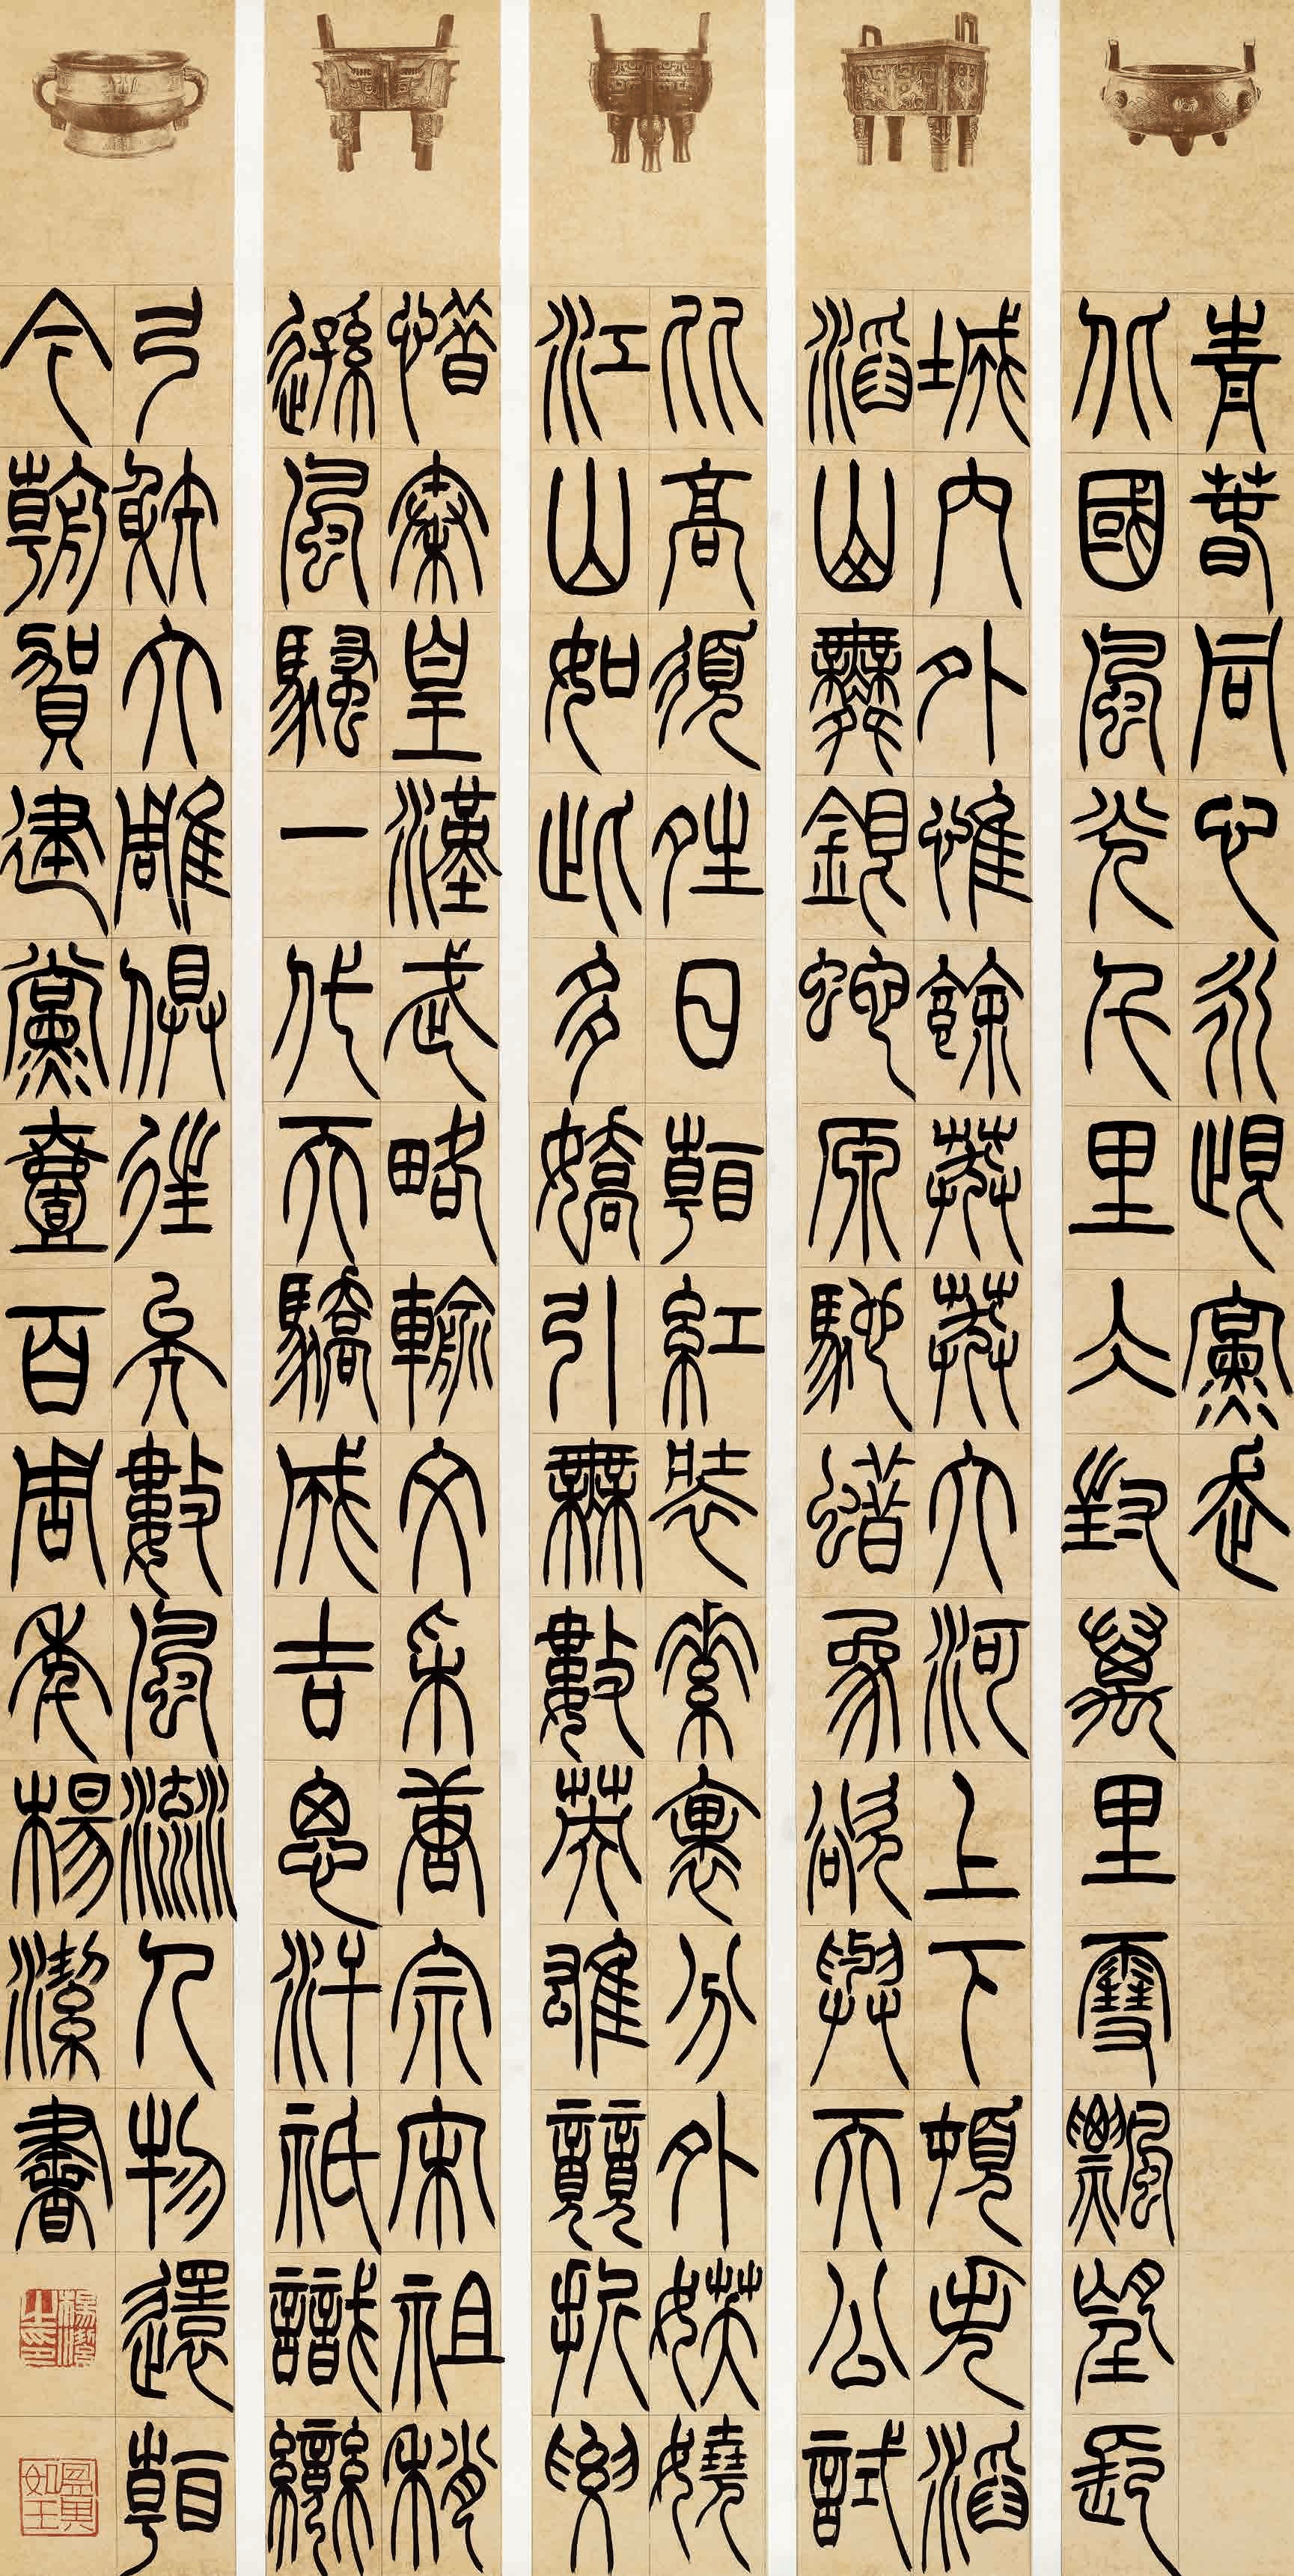 青春同心永跟黨走
北國風光千里冰封萬里雪飄望長
城內外惟餘莽莽大河上下頓失滔
滔山舞銀蛇原馳蜡象欲與天公試
比高須晴日看紅裝素裹分外妖嬈
江山如此多嬌引無數英雄競折腰
惜秦皇漢武略輸文采唐宗宋祖稍
遜風騷一代天驕成吉思汗祇識彎
弓射大雕俱往矣數風流人物還看
今朝賀建黨壹百周年楊潔書
楊潔之印
溫其如玉